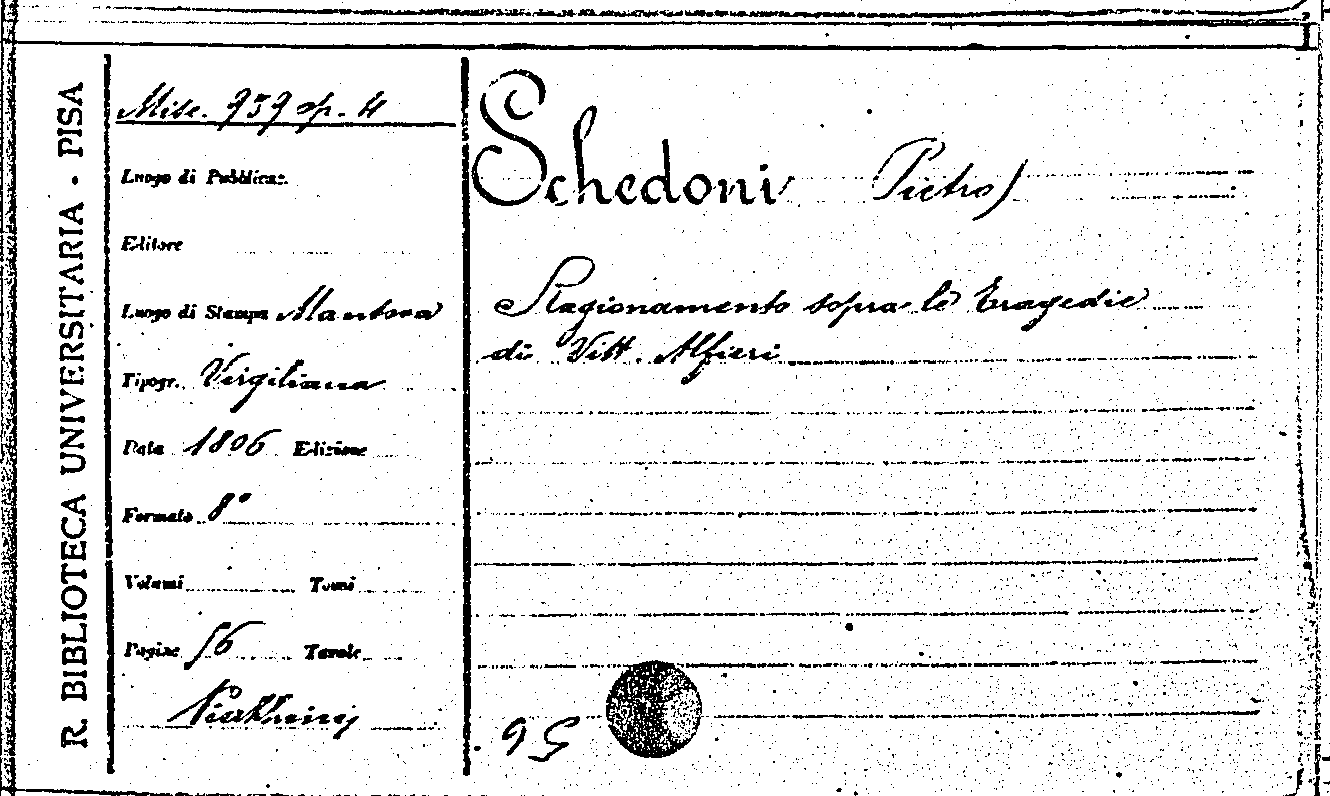 R. BIBLIOTECA UNIVERSITARIA - PISA
Misc. 939 op. 4
Luogo di Pubblicaz.
Editore
Luogo di Stampa Mantova
Tipogr. Virgiliana
Data 1806 Edizione
Formato 8°
Volumi Tomi
Pagine 56 Tavole
Schedoni (Pietro)
Ragionamento sopra le Tragedie
di Vitt. Alfieri